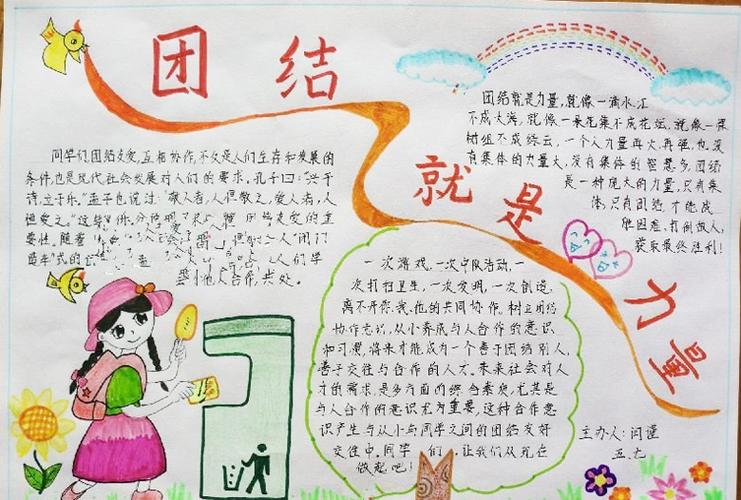 团结
就是
力量
同学们,团结友爱,互相协作,不仅是人们生存和发展的
条件,也是现代社会发展对人们的要求。孔子曰:“兴于
诗,立于乐。”孟子也说过:“敬人者,人恒敬之,爱人者,人
恒爱之。”
要性。随着
人“闭门
造车”式的
人们学
会与他人合作,共处。
团结就是力量,就像一滴水汇
不成大海,就像一朵花集不成花坛,就像一棵
树组不成绿云,一个人力量再大,再强,也没
有集体的力量大,没有集体的智慧多,团结
是一种庞大的力量,只有集
体,只有团结,才能战
胜困难,打倒敌人,
获取最终胜利!
一次游戏,一次中队活动,一
次打扫卫生,一次发明,一次创造,
离不开你、我、他的共同协作。树立团结
协作意识,从小养成与人合作的意识
和习惯,将来才能成为一个善于团结别人,
善于交往与合作的人才。未来社会对人
才的需求,是多方面的综合素质,尤其是
与人合作的意识尤为重要,这种合作意
识产生与从小与同学之间的团结友好
交往中。同学们,让我们从现在
做起吧!
主办人:闫谨